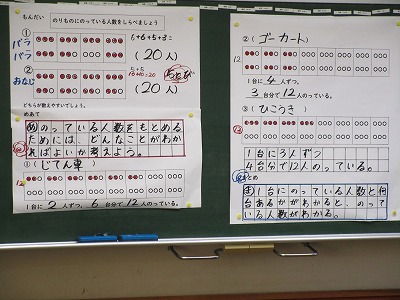 もんだい　のりものにのっている人数をしらべましょう
①
バラ
バラ
6+6+5+3=
(20人)
②
おなじ
5+5
10+10=20
(20人)
どちらが数えやすいでしょう。
めあて
めのっている人数をもとめる
ためには、どんなことがわか
ればよいか考えよう。
①(じてん車)
12
1台に 2人ずつ、6台分で12人のっている。
②(ゴーカート)
12
1台に 4人ずつ、
3台分で12人のっている。
③(ひこうき)
1台に3人ずつ
4台分で12人のっている。
まとめ
ま1台にのっている人数と何
台あるかがわかると、のって
いる人数がわかる。